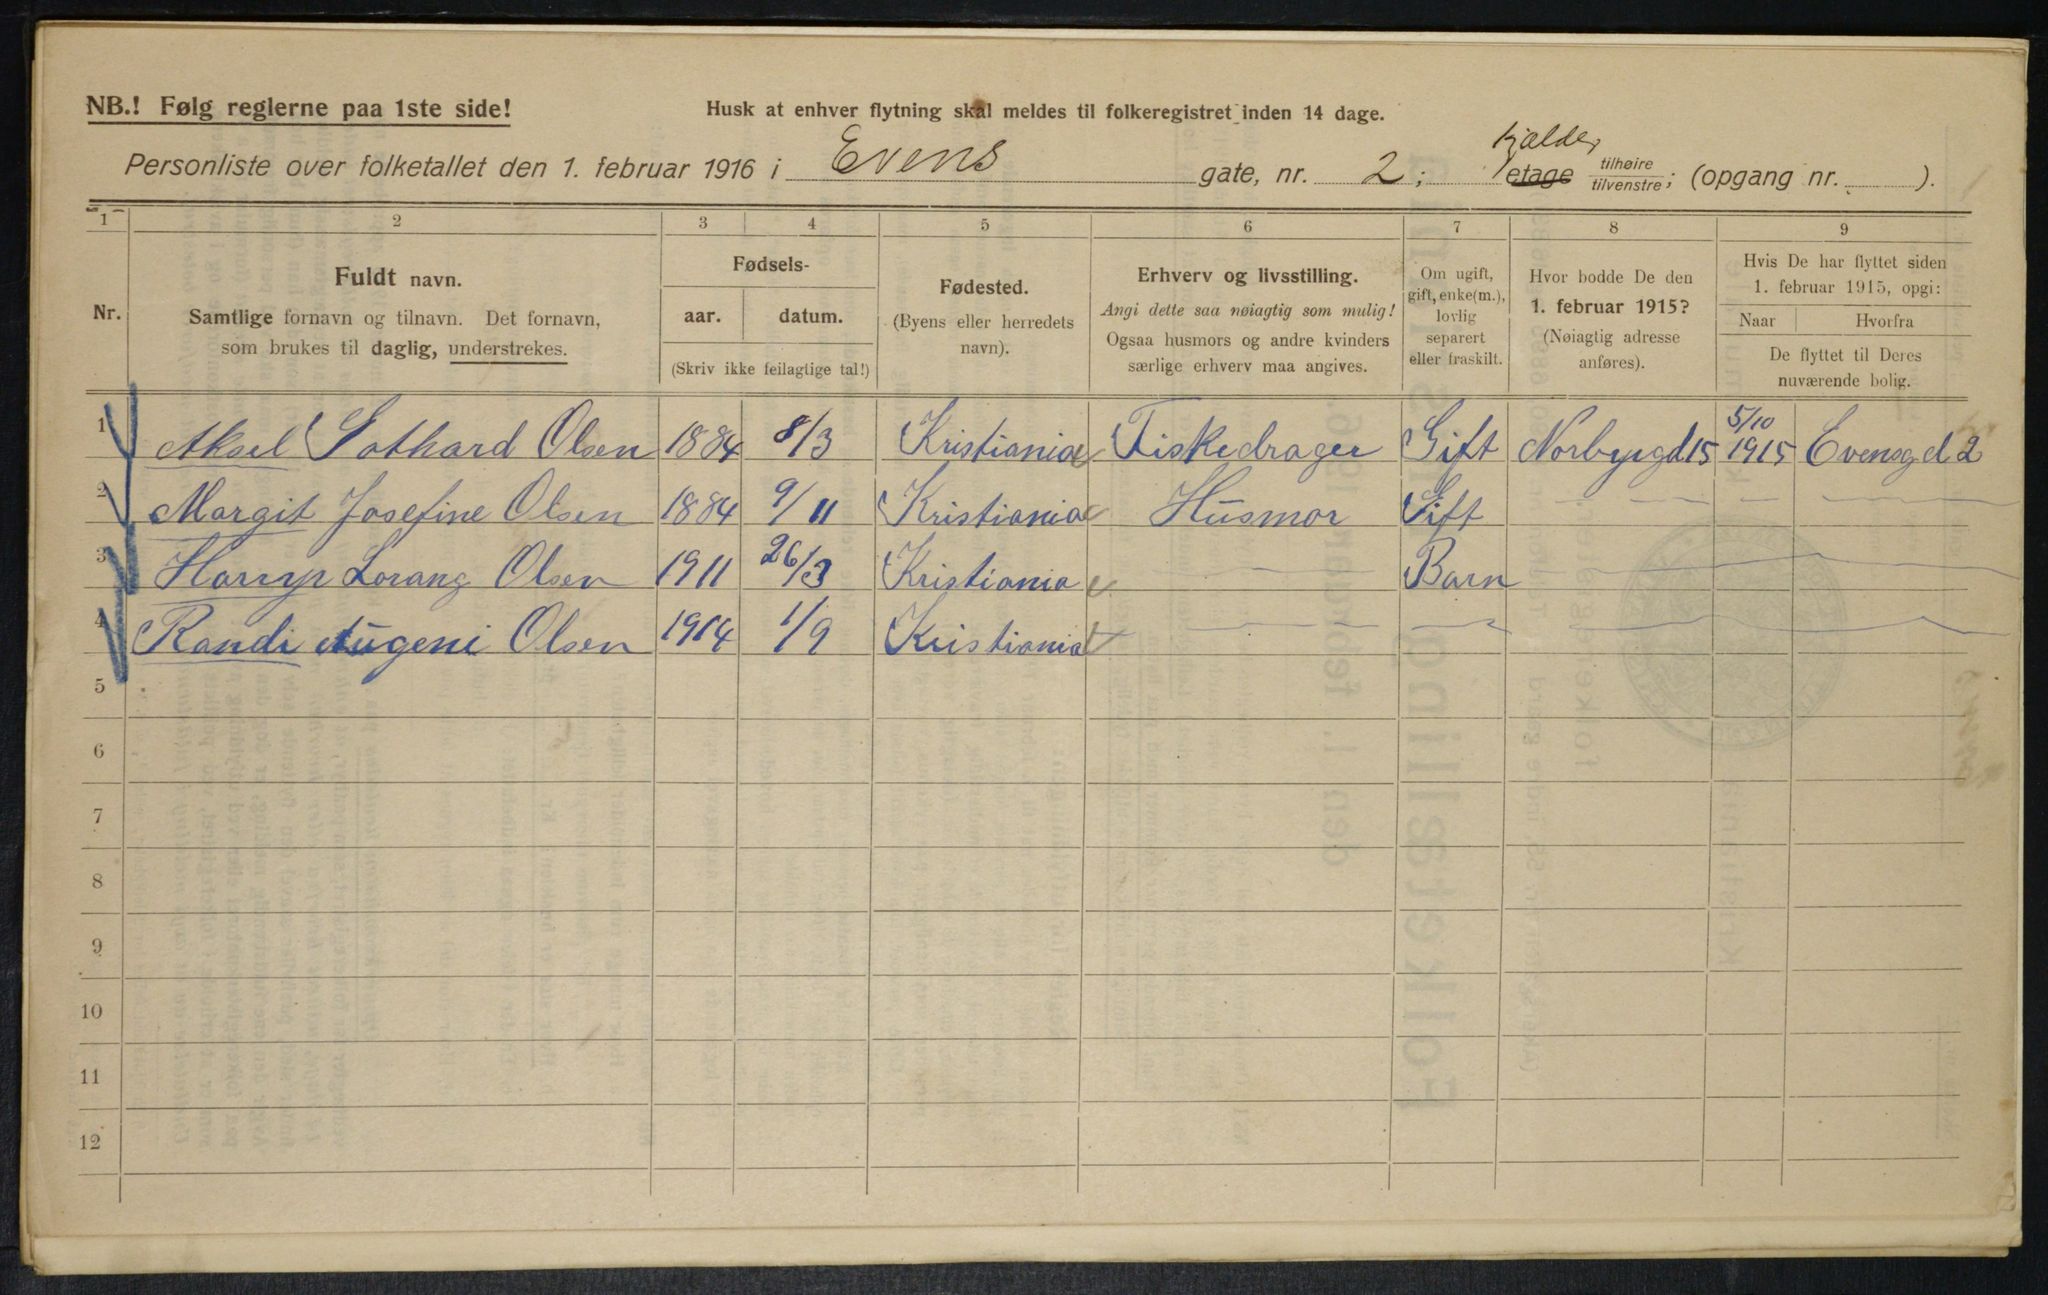 NB.! Følg reglerne paa 1ste side!
Husk at enhver flytning skal meldes til folkeregistret inden 14 dage.
Kjælder
Personliste over folketallet den 1. februar 1916 i Evens gate, nr. 2; etage tilhøire tilvenstre; (opgang nr. ).
1 2 3 4 5 6 7 8 9
Nr.
Fuldt navn.
Samtlige fornavn og tilnavn. Det fornavn,
som brukes til daglig, understrekes.
Fødsels-
aar. datum.
(Skriv ikke feilagtige tal!)
Fødested.
(Byens eller herredets
navn).
Erhverv og livsstilling.
Angi dette saa nøiagtig som mulig!
Ogsaa husmors og andre kvinders
særlige erhverv maa angives.
Om ugift,
gift, enke(m.),
lovlig
separert
eller fraskilt.
Hvor bodde De den
1. februar 1915?
(Nøiagtig adresse
anføres).
Hvis De har flyttet siden
1. februar 1915, opgi:
Naar Hvorfra
De flyttet til Deres
nuværende bolig.
1 Aksel Gothard Olsen 1884 8/3 Kristiania Fiskedrager Gift Norbygd 15 5/10 1915 Evensgd 2
2 Margit Josefine Olsen 1884 9/11 Kristiania Husmor Gift
3 Harry Lorang Olsen 1911 26/3 Kristiania Barn
4 Randi Augeni Olsen 1914 1/9 Kristiania
5
6
7
8
9
10
11
12